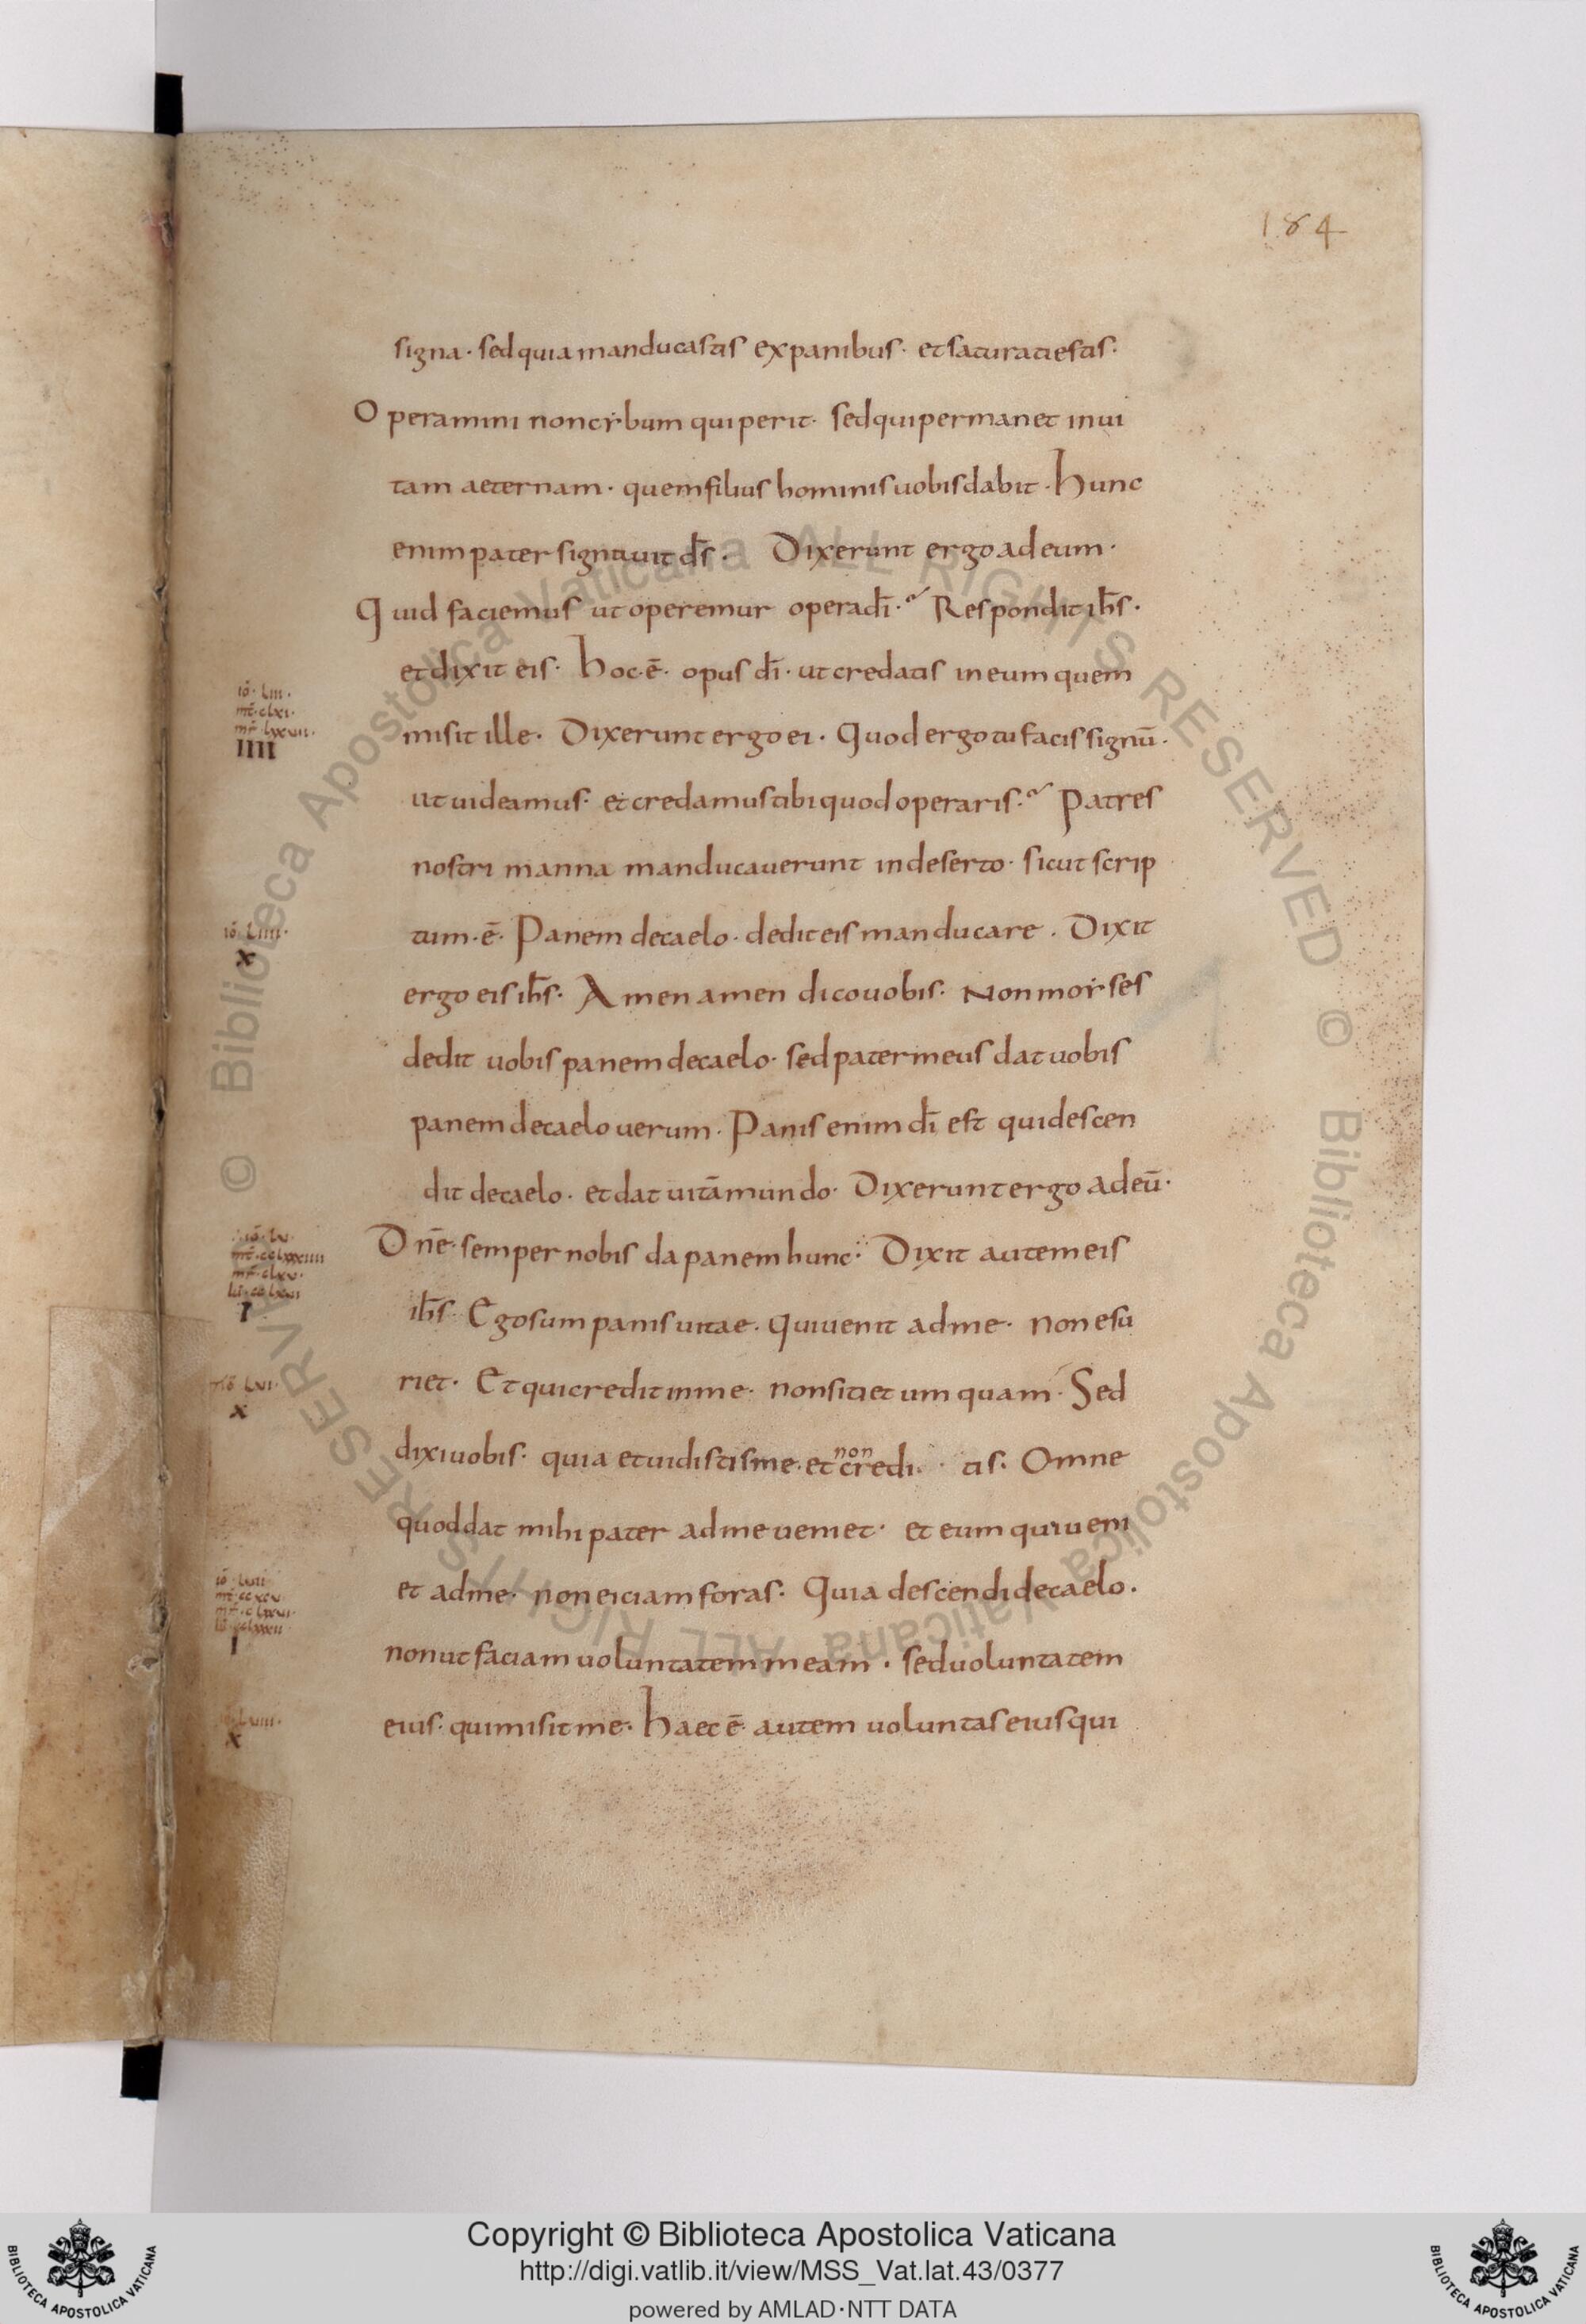 184
signa · sed quia manducastis ex panibus · et saturati estis ·
Operamini non cybum qui perit · sed qui permanet in ui
tam aeternam · quem filius hominis uobis dabit · Hunc
enim pater signauit d̄s · Dixerunt ergo ad eum ·
Quid faciemus ut operemur opera dī · Respondit ih̄s ·
et dixit eis · Hoc · ē · opus dī · ut credatis in eum quem
iō · liii ·
mt̄ · clxi ·
mr̄ · lxxvii ·
IIII
misit ille · Dixerunt ergo ei · Quod ergo tu facis signū ·
ut uideamus · et credamus tibi quod operaris · Patres
nostri manna manducauerunt in deserto · sicut scrip
iō · liiii ·
x
tum · ē · Panem de caelo · dedit eis manducare · Dixit
ergo eis ih̄s · Amen amen dico uobis · Non moyses
dedit uobis panem de caelo · sed pater meus dat uobis
panem de caelo uerum · Panis enim dī est qui descen
dit de caelo · et dat uitā mundo · Dixerunt ergo ad eū ·
iō · lv ·
mt̄ · cclxxxiiii
mr̄ · clxv ·
lū · cclxvi
I
Dn̄e · semper nobis da panem hunc · Dixit autem eis
ih̄s · Ego sum panis uitae · qui uenit ad me · non esu
iō · lvi ·
x
riet · Et qui credit in me · non sitiet umquam · Sed
dixi uobis · quia et uidistis me · et non credi tis · Omne
quod dat mihi pater ad me ueniet · et eum qui ueni
et ad me · non eiciam foras · Quia descendi de caelo ·
iō · lvii ·
mt̄ · ccxcv ·
mr̄ · clxxvi ·
I
non ut faciam uoluntatem meam · sed uoluntatem
lviii ·
x
eius · qui misit me · Haec ē · autem uoluntas eius qui
© Biblioteca Apostolica Vaticana ALL RIGHTS RESERVED © Biblioteca Apostolica Vaticana ALL RIGHTS RESERVED
Copyright © Biblioteca Apostolica Vaticana
http://digi.vatlib.it/view/MSS_Vat.lat.43/0377
powered by AMLAD·NTT DATA
BIBLIOTECA APOSTOLICA VATICANA
BIBLIOTECA APOSTOLICA VATICANA